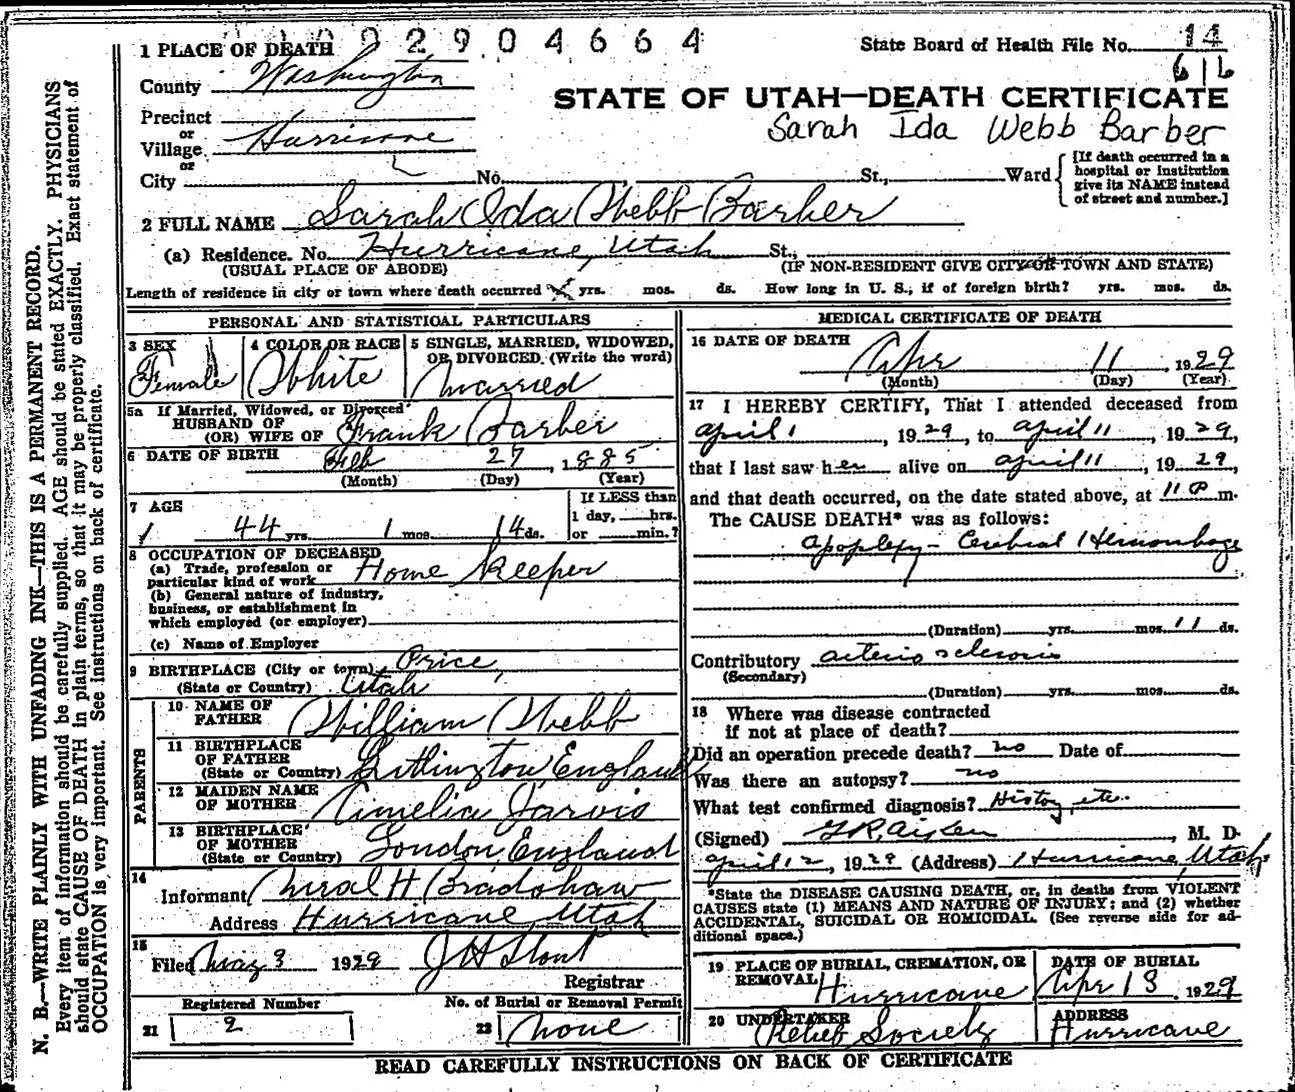 002904664
1 PLACE OF DEATH
State Board of Health File No. 14
616
County Washington
STATE OF UTAH—DEATH CERTIFICATE
Sarah Ida Webb Barber
Precinct
or
Village Hurricane
or
City No. St., Ward
[If death occurred in a
hospital or institution
give its NAME instead
of street and number.]
2 FULL NAME Sarah Ida Webb Barber
(a) Residence. No. Hurricane, Utah St.,
(USUAL PLACE OF ABODE) (IF NON-RESIDENT GIVE CITY OR TOWN AND STATE)
Length of residence in city or town where death occurred yrs. mos. ds. How long in U. S., if of foreign birth? yrs. mos. ds.
PERSONAL AND STATISTICAL PARTICULARS
3 SEX Female
4 COLOR OR RACE White
5 SINGLE, MARRIED, WIDOWED,
OR DIVORCED. (Write the word)
Married
5a If Married, Widowed, or Divorced
HUSBAND OF
(OR) WIFE OF Frank Barber
6 DATE OF BIRTH Feb 27, 1885
(Month) (Day) (Year)
7 AGE
44 yrs. 1 mos. 14 ds.
If LESS than
1 day, hrs.
or min.?
8 OCCUPATION OF DECEASED
(a) Trade, profession or
particular kind of work Home Keeper
(b) General nature of industry,
business, or establishment in
which employed (or employer)
(c) Name of Employer
9 BIRTHPLACE (City or town) Price,
(State or Country) Utah
PARENTS
10 NAME OF
FATHER William Webb
11 BIRTHPLACE
OF FATHER
(State or Country) Litlington England
12 MAIDEN NAME
OF MOTHER Amelia Jarvis
13 BIRTHPLACE
OF MOTHER
(State or Country) London, England
14
Informant H Bradshaw
Address Hurricane Utah
15
Filed May 3 1929 J H Stout
Registrar
Registered Number
21 2
No. of Burial or Removal Permit
22 none
MEDICAL CERTIFICATE OF DEATH
16 DATE OF DEATH
Apr 11, 1929
(Month) (Day) (Year)
17 I HEREBY CERTIFY, That I attended deceased from
April 1, 1929, to April 11, 1929,
that I last saw her alive on April 11, 1929,
and that death occurred, on the date stated above, at 11 P m.
The CAUSE DEATH* was as follows:
Apoplexy - Cerebral Hemorrhage
(Duration) yrs. mos. 11 ds.
Contributory arterio sclerosis
(Secondary)
(Duration) yrs. mos. ds.
18 Where was disease contracted
if not at place of death?
Did an operation precede death? no Date of
Was there an autopsy? no
What test confirmed diagnosis? History, etc.
(Signed) G R Aiken, M. D.
April 12, 1929 (Address) Hurricane, Utah
*State the DISEASE CAUSING DEATH, or, in deaths from VIOLENT
CAUSES state (1) MEANS AND NATURE OF INJURY; and (2) whether
ACCIDENTAL, SUICIDAL OR HOMICIDAL. (See reverse side for ad-
ditional space.)
19 PLACE OF BURIAL, CREMATION, OR
REMOVAL Hurricane
DATE OF BURIAL
Apr 13, 1929
20 UNDERTAKER
Relief Society
ADDRESS
Hurricane
READ CAREFULLY INSTRUCTIONS ON BACK OF CERTIFICATE
N. B.—WRITE PLAINLY WITH UNFADING INK—THIS IS A PERMANENT RECORD.
Every item of information should be carefully supplied. AGE should be stated EXACTLY. PHYSICIANS
should state CAUSE OF DEATH in plain terms, so that it may be properly classified. Exact statement of
OCCUPATION is very important. See instructions on back of certificate.